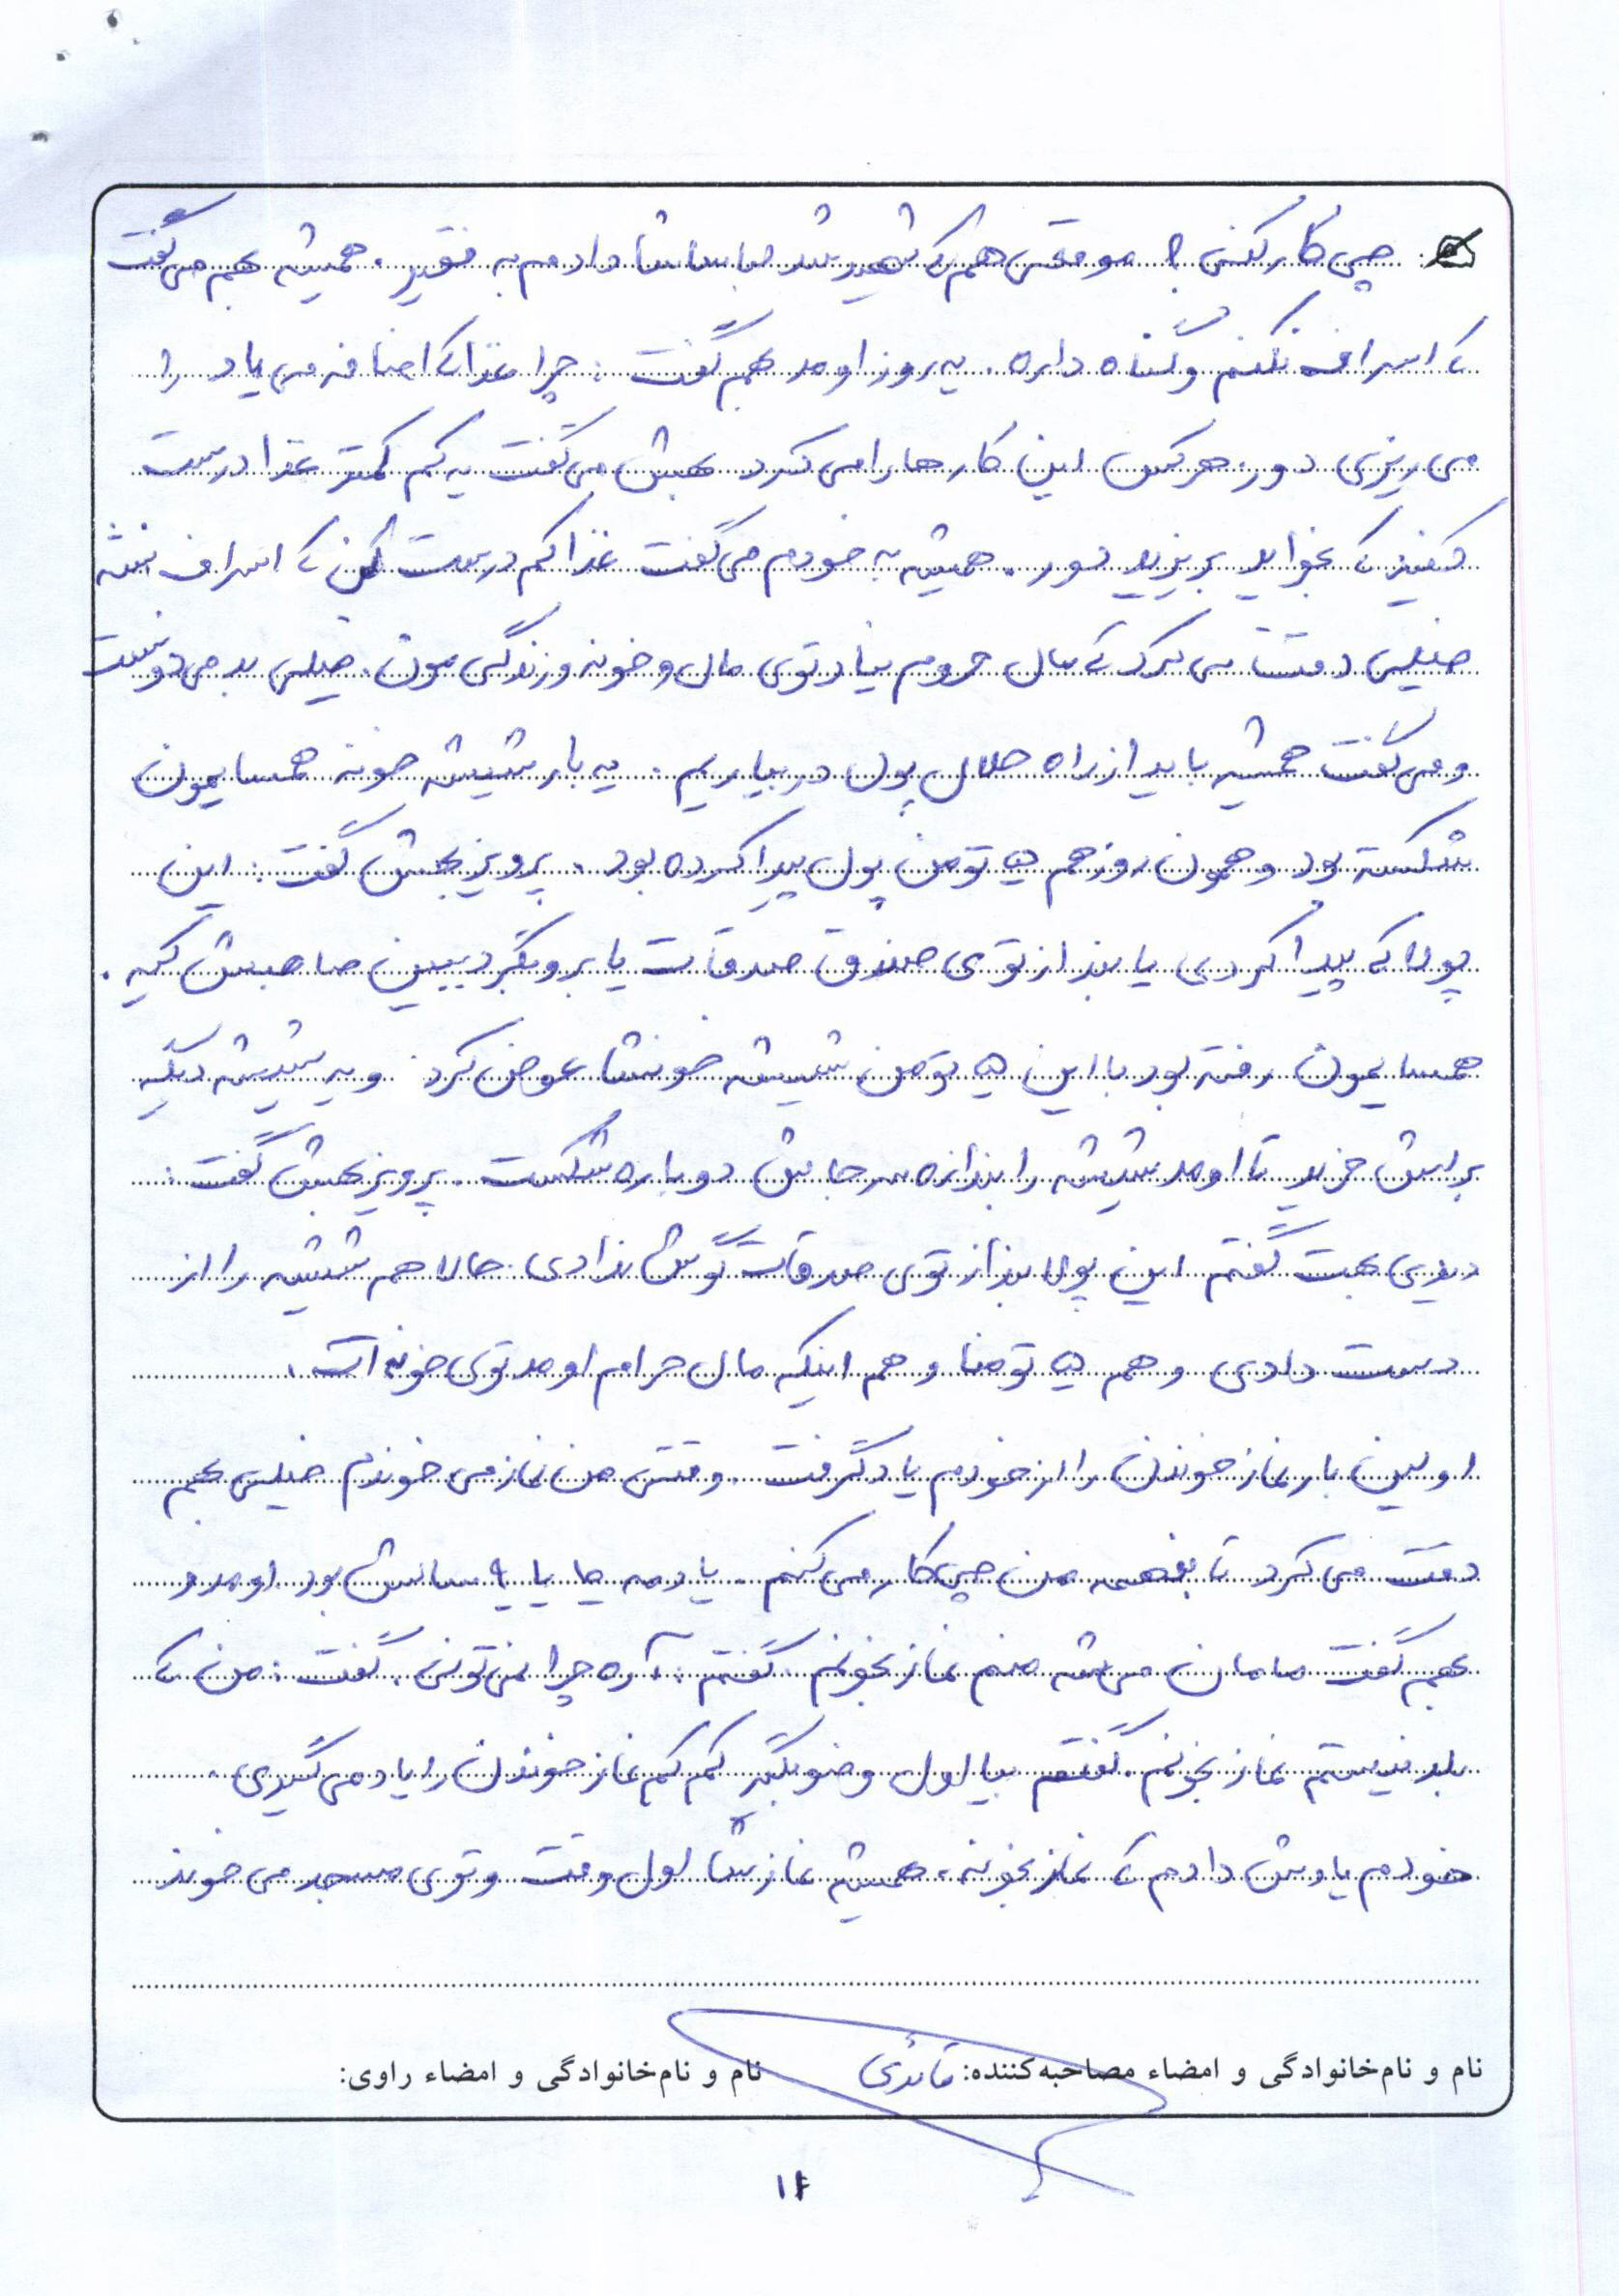 چی کار کنی؟ موقعی هم که شهید شد لباساشا دادم به فقیر. همیشه بهم می‌گفت
که اسراف نکنم و گناه داره. یه روز اومد بهم گفت: چرا غذای اضافه می‌یاد را
می‌ریزی دور. هر کس این کارها را می‌کرد بهش می‌گفت یه کم کمتر غذا درست
کنید که بخواید بریزید دور. همیشه به خودم می‌گفت غذا کم درست کن که اسراف نشه
خیلی دقت می‌کرد که مال حروم نیاد توی مال و خونه و زندگی‌مون. خیلی بد می‌دونست
و می‌گفت همیشه باید از راه حلال پول در بیاریم. یه بار شیشه خونه همسایمون
شکسته بود و همون روز هم ۵ تومن پول پیدا کرده بود. پرویز بهش گفت: این
پولا که پیدا کردی یا بنداز توی صندوق صدقات یا برو بگرد ببین صاحبش کیه.
همسایمون رفته بود با این ۵ تومن شیشه خونشا عوض کرد و یه شیشه دیگه
براش خرید تا اومد شیشه را بندازه سر جاش دوباره شکست. پرویز بهش گفت:
دیدی بهت گفتم این پولا بنداز توی صدقات گوش ندادی. حالا هم شیشه را از
دست دادی و هم ۵ تومنا و هم اینکه مال حرام اومد توی خونه‌ات.
اولین بار نماز خوندن را از خودم یاد گرفت. وقتی من نماز می‌خوندم خیلی بهم
دقت می‌کرد تا بفهمه من چی‌کار می‌کنم. یادمه ۸ یا ۹ سالش بود اومد و
بهم گفت مامان می‌شه منم نماز بخونم. گفتم: آره چرا نمی‌تونی. گفت: من که
بلد نیستم نماز بخونم. گفتم بیا اول وضو بگیر کم کم نماز خوندن را یاد می‌گیری.
خودم یادش دادم که نماز بخونه. همیشه نمازشا اول وقت و توی مسجد می‌خوند
نام و نام‌خانوادگی و امضاء مصاحبه‌کننده: قائدی نام و نام‌خانوادگی و امضاء راوی:
۱۴